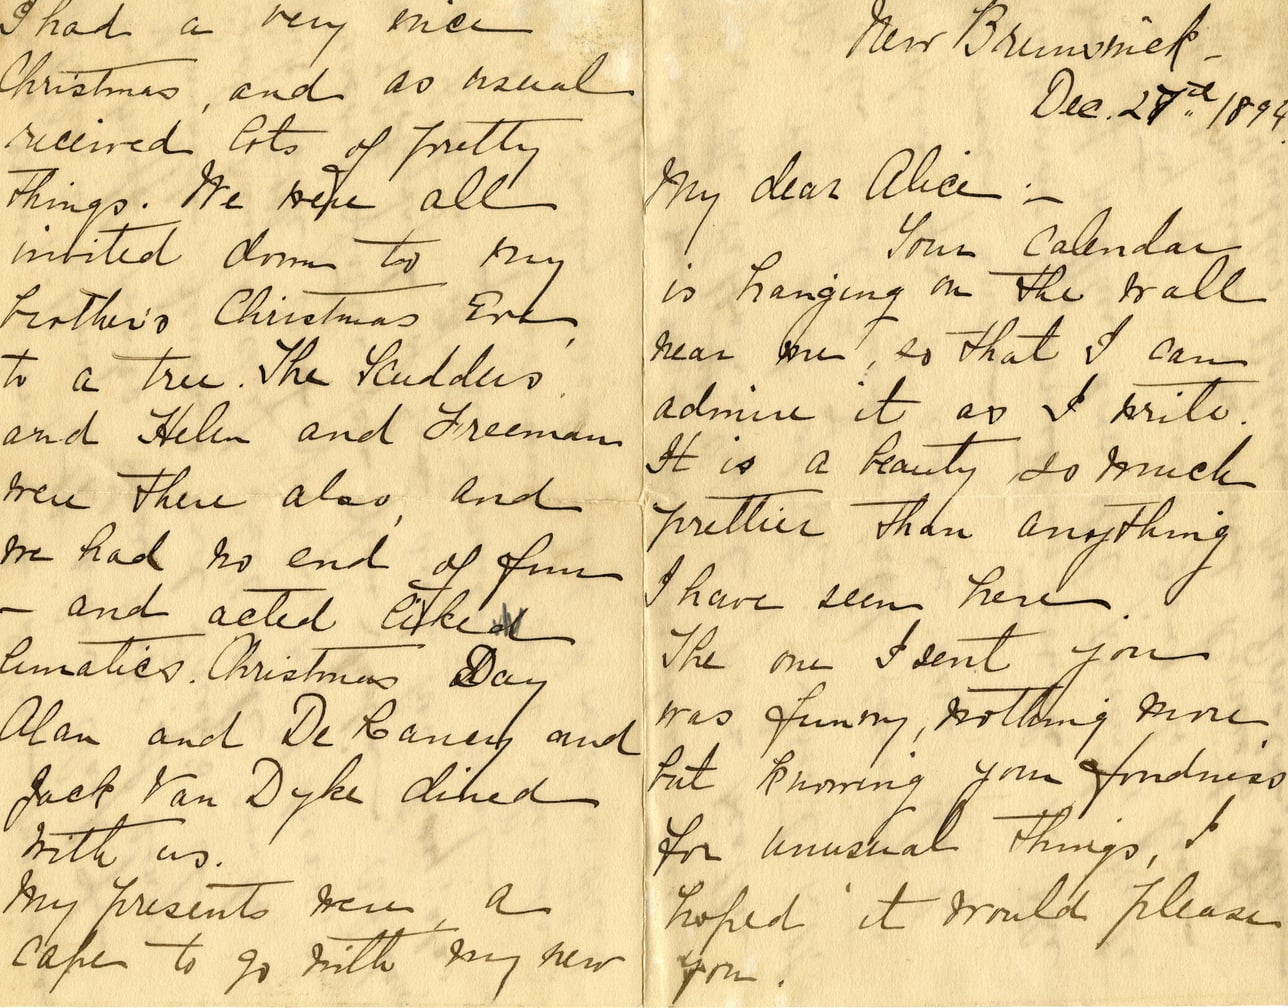 New Brunswick -
Dec. 27th 1894.
My dear Alice :-
Your calendar
is hanging on the wall
near me, so that I can
admire it as I write.
It is a beauty so much
prettier than anything
I have seen here.
The one I sent you
was funny, nothing more,
but knowing your fondness
for unusual things, I
hoped it would please
you.
I had a very nice
Christmas, and as usual
received lots of pretty
things. We were all
invited down to my
brother's Christmas Eve,
to a tree. The Scudders
and Helen and Freeman
were there also, and
we had no end of fun
- and acted like
lunatics. Christmas Day
Alan and De Lancey and
Jack Van Dyke dined
with us.
My presents were, a
cape to go with my new